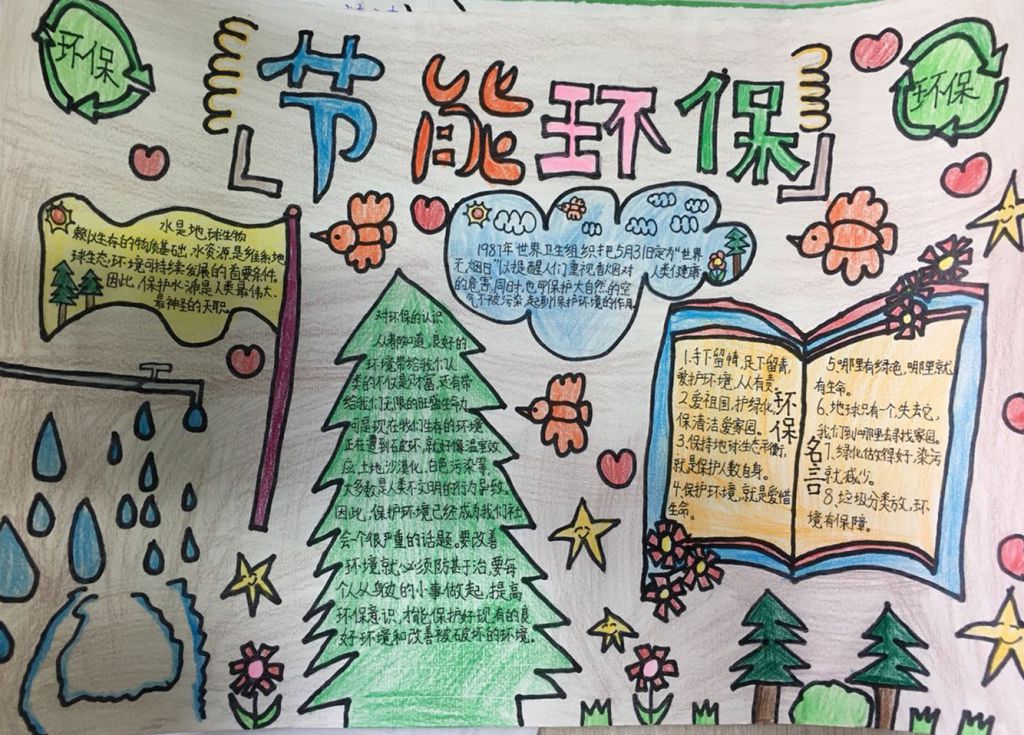 环保
节能环保
环保
水是地球生物
赖以生存的物质基础,水资源是维系地
球生态环境可持续发展的首要条件。
因此,保护水源是人类最伟大、
最神圣的天职。
1987年世界卫生组织把5月31日定为“世界
无烟日”以提醒人们重视香烟对人类健康
的危害,同时,也可保护大自然的空
气不被污染,起到保护环境的作用。
对环保的认识
人者都知道,良好的
环境带给我们人
类的不仅是财富,还有带
给我们无限的旺盛生命力
可是现在我们生存的环境
正在遭到破坏,就好像温室效
应,土地沙漠化,白色污染等,
大多数是人类不文明的行为导致。
因此,保护环境已经成为我们社
会个很严重的话题。要改善
环境就必须防甚于治,要每
个人从身边的小事做起,提高
环保意识,才能保护好现有的良
好环境和改善被破坏的环境。
1.手下留情,足下留青,
爱护环境,人人有责。
2.爱祖国,护绿化,
保清洁爱家园。
3.保持地球生态平衡,
就是保护人数自身。
4.保护环境,就是爱惜
生命。
环保
名言
5.哪里有绿色,哪里就
有生命。
6.地球只有一个,失去它,
我们到哪里去寻找家园。
7.绿化做得好,染污
就减少。
8.垃圾分类放,环
境有保障。